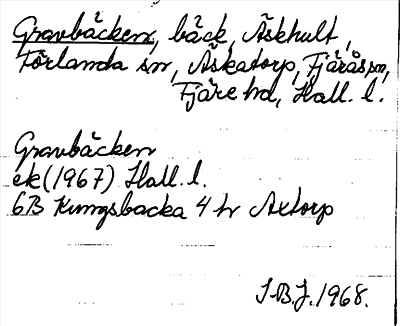 Gravbäcken, bäck, Äskhult,
Förlanda sn, Äskatorp, Fjärås sn,
Fjäre hd, Hall. l.
Gravbäcken
ek (1967) Hall. l.
6B Kungsbacka 4 hr Axtorp
S.B.J. 1968.